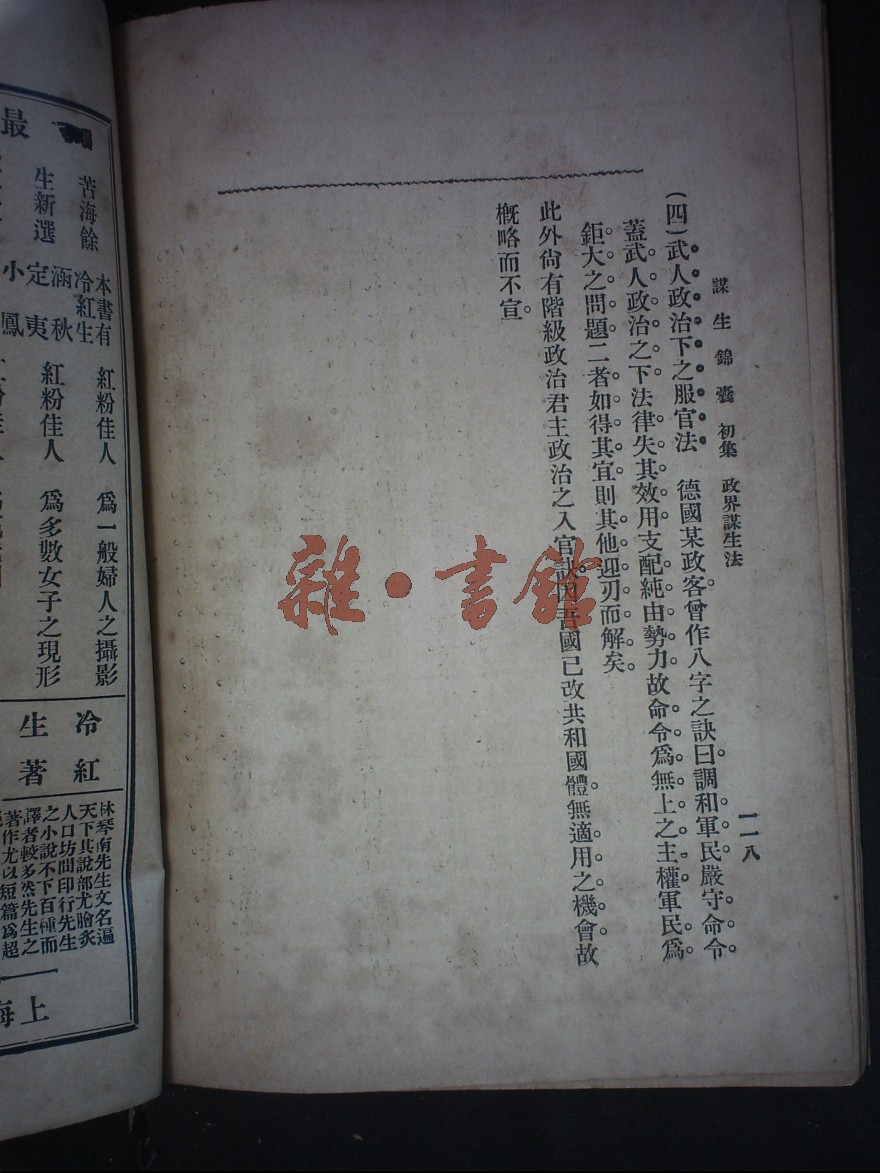 謀生錦囊 初集 政界謀生法 一一八
(四)武人政治下之服官法 德國某政客曾作八字之訣曰調和軍民嚴守命令。
蓋武人政治之下法律失其效用支配純由勢力故命令爲無上之主權軍民爲
鉅大之問題二者如得其宜則其他迎刃而解矣。
此外尙有階級政治君主政治之入官訣因吾國已改共和國體無適用之機會故
概略而不宣。
雜·書館
最
苦海餘
生新選
本書有
冷紅生
涵秋
定夷
小鳳
紅粉佳人 爲一般婦人之攝影
紅粉佳人 爲多數女子之現形
冷紅
生著
林琴南先生文名遍
天下其說部尤膾炙
人口坊間印行先生
之小說不下百種而
譯者較多然先生之
著作尤以短篇爲超
上海